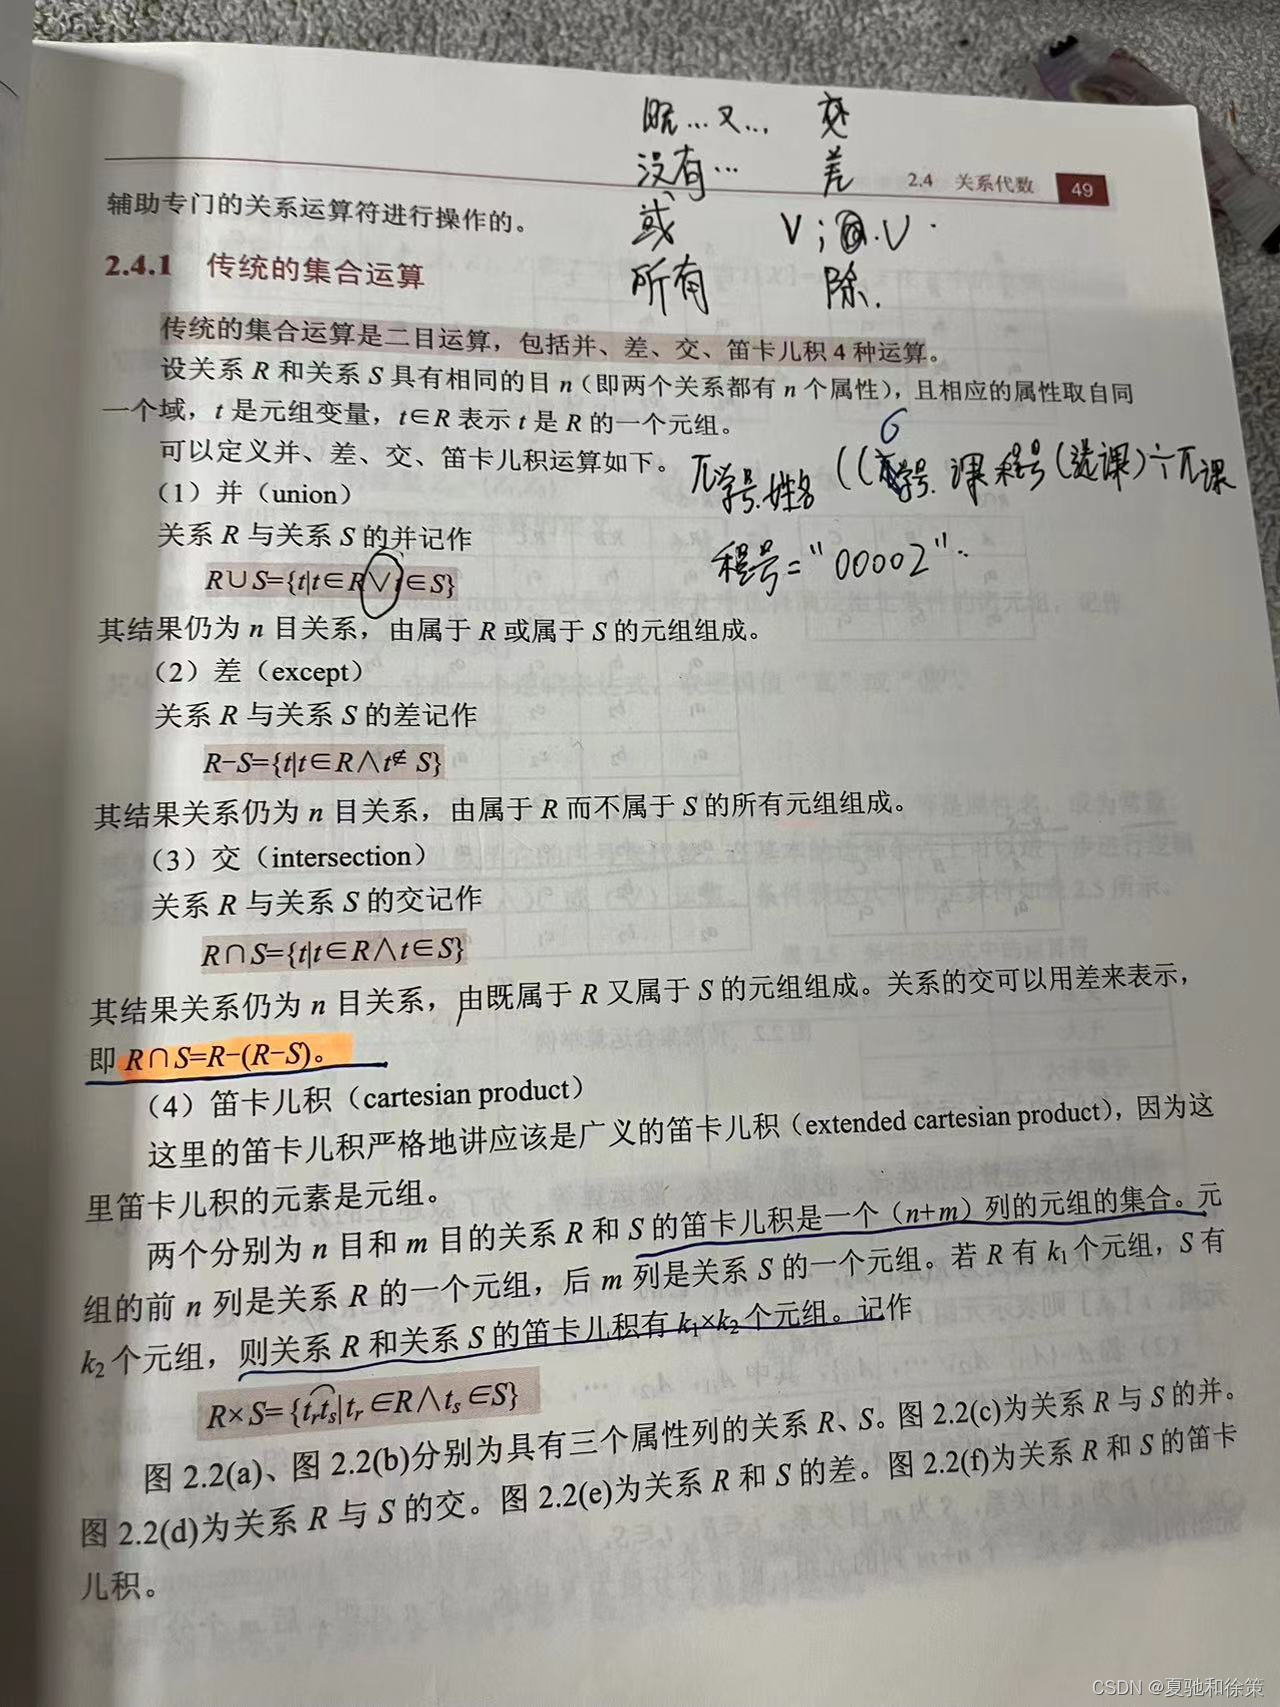 既…又… 交
没有… 差
或 ∨；.∪.
所有 除.
2.4 关系代数 49
辅助专门的关系运算符进行操作的。
2.4.1 传统的集合运算
传统的集合运算是二目运算，包括并、差、交、笛卡儿积 4 种运算。
设关系 R 和关系 S 具有相同的目 n（即两个关系都有 n 个属性），且相应的属性取自同
一个域，t 是元组变量，t∈R 表示 t 是 R 的一个元组。
可以定义并、差、交、笛卡儿积运算如下。
π学号.姓名 ((学号.课程号(选课)÷π课
程号="00002".
（1）并（union）
关系 R 与关系 S 的并记作
R∪S={t|t∈R∨t∈S}
其结果仍为 n 目关系，由属于 R 或属于 S 的元组组成。
（2）差（except）
关系 R 与关系 S 的差记作
R−S={t|t∈R∧t∉S}
其结果关系仍为 n 目关系，由属于 R 而不属于 S 的所有元组组成。
（3）交（intersection）
关系 R 与关系 S 的交记作
R∩S={t|t∈R∧t∈S}
其结果关系仍为 n 目关系，由既属于 R 又属于 S 的元组组成。关系的交可以用差来表示，
即 R∩S=R−(R−S)。
（4）笛卡儿积（cartesian product）
这里的笛卡儿积严格地讲应该是广义的笛卡儿积（extended cartesian product），因为这
里笛卡儿积的元素是元组。
两个分别为 n 目和 m 目的关系 R 和 S 的笛卡儿积是一个（n+m）列的元组的集合。元
组的前 n 列是关系 R 的一个元组，后 m 列是关系 S 的一个元组。若 R 有 k₁ 个元组，S 有
k₂ 个元组，则关系 R 和关系 S 的笛卡儿积有 k₁×k₂ 个元组。记作
R×S={t͡ᵣtₛ|tᵣ∈R∧tₛ∈S}
图 2.2(a)、图 2.2(b)分别为具有三个属性列的关系 R、S。图 2.2(c)为关系 R 与 S 的并。
图 2.2(d)为关系 R 与 S 的交。图 2.2(e)为关系 R 和 S 的差。图 2.2(f)为关系 R 和 S 的笛卡
儿积。
CSDN @夏驰和徐策